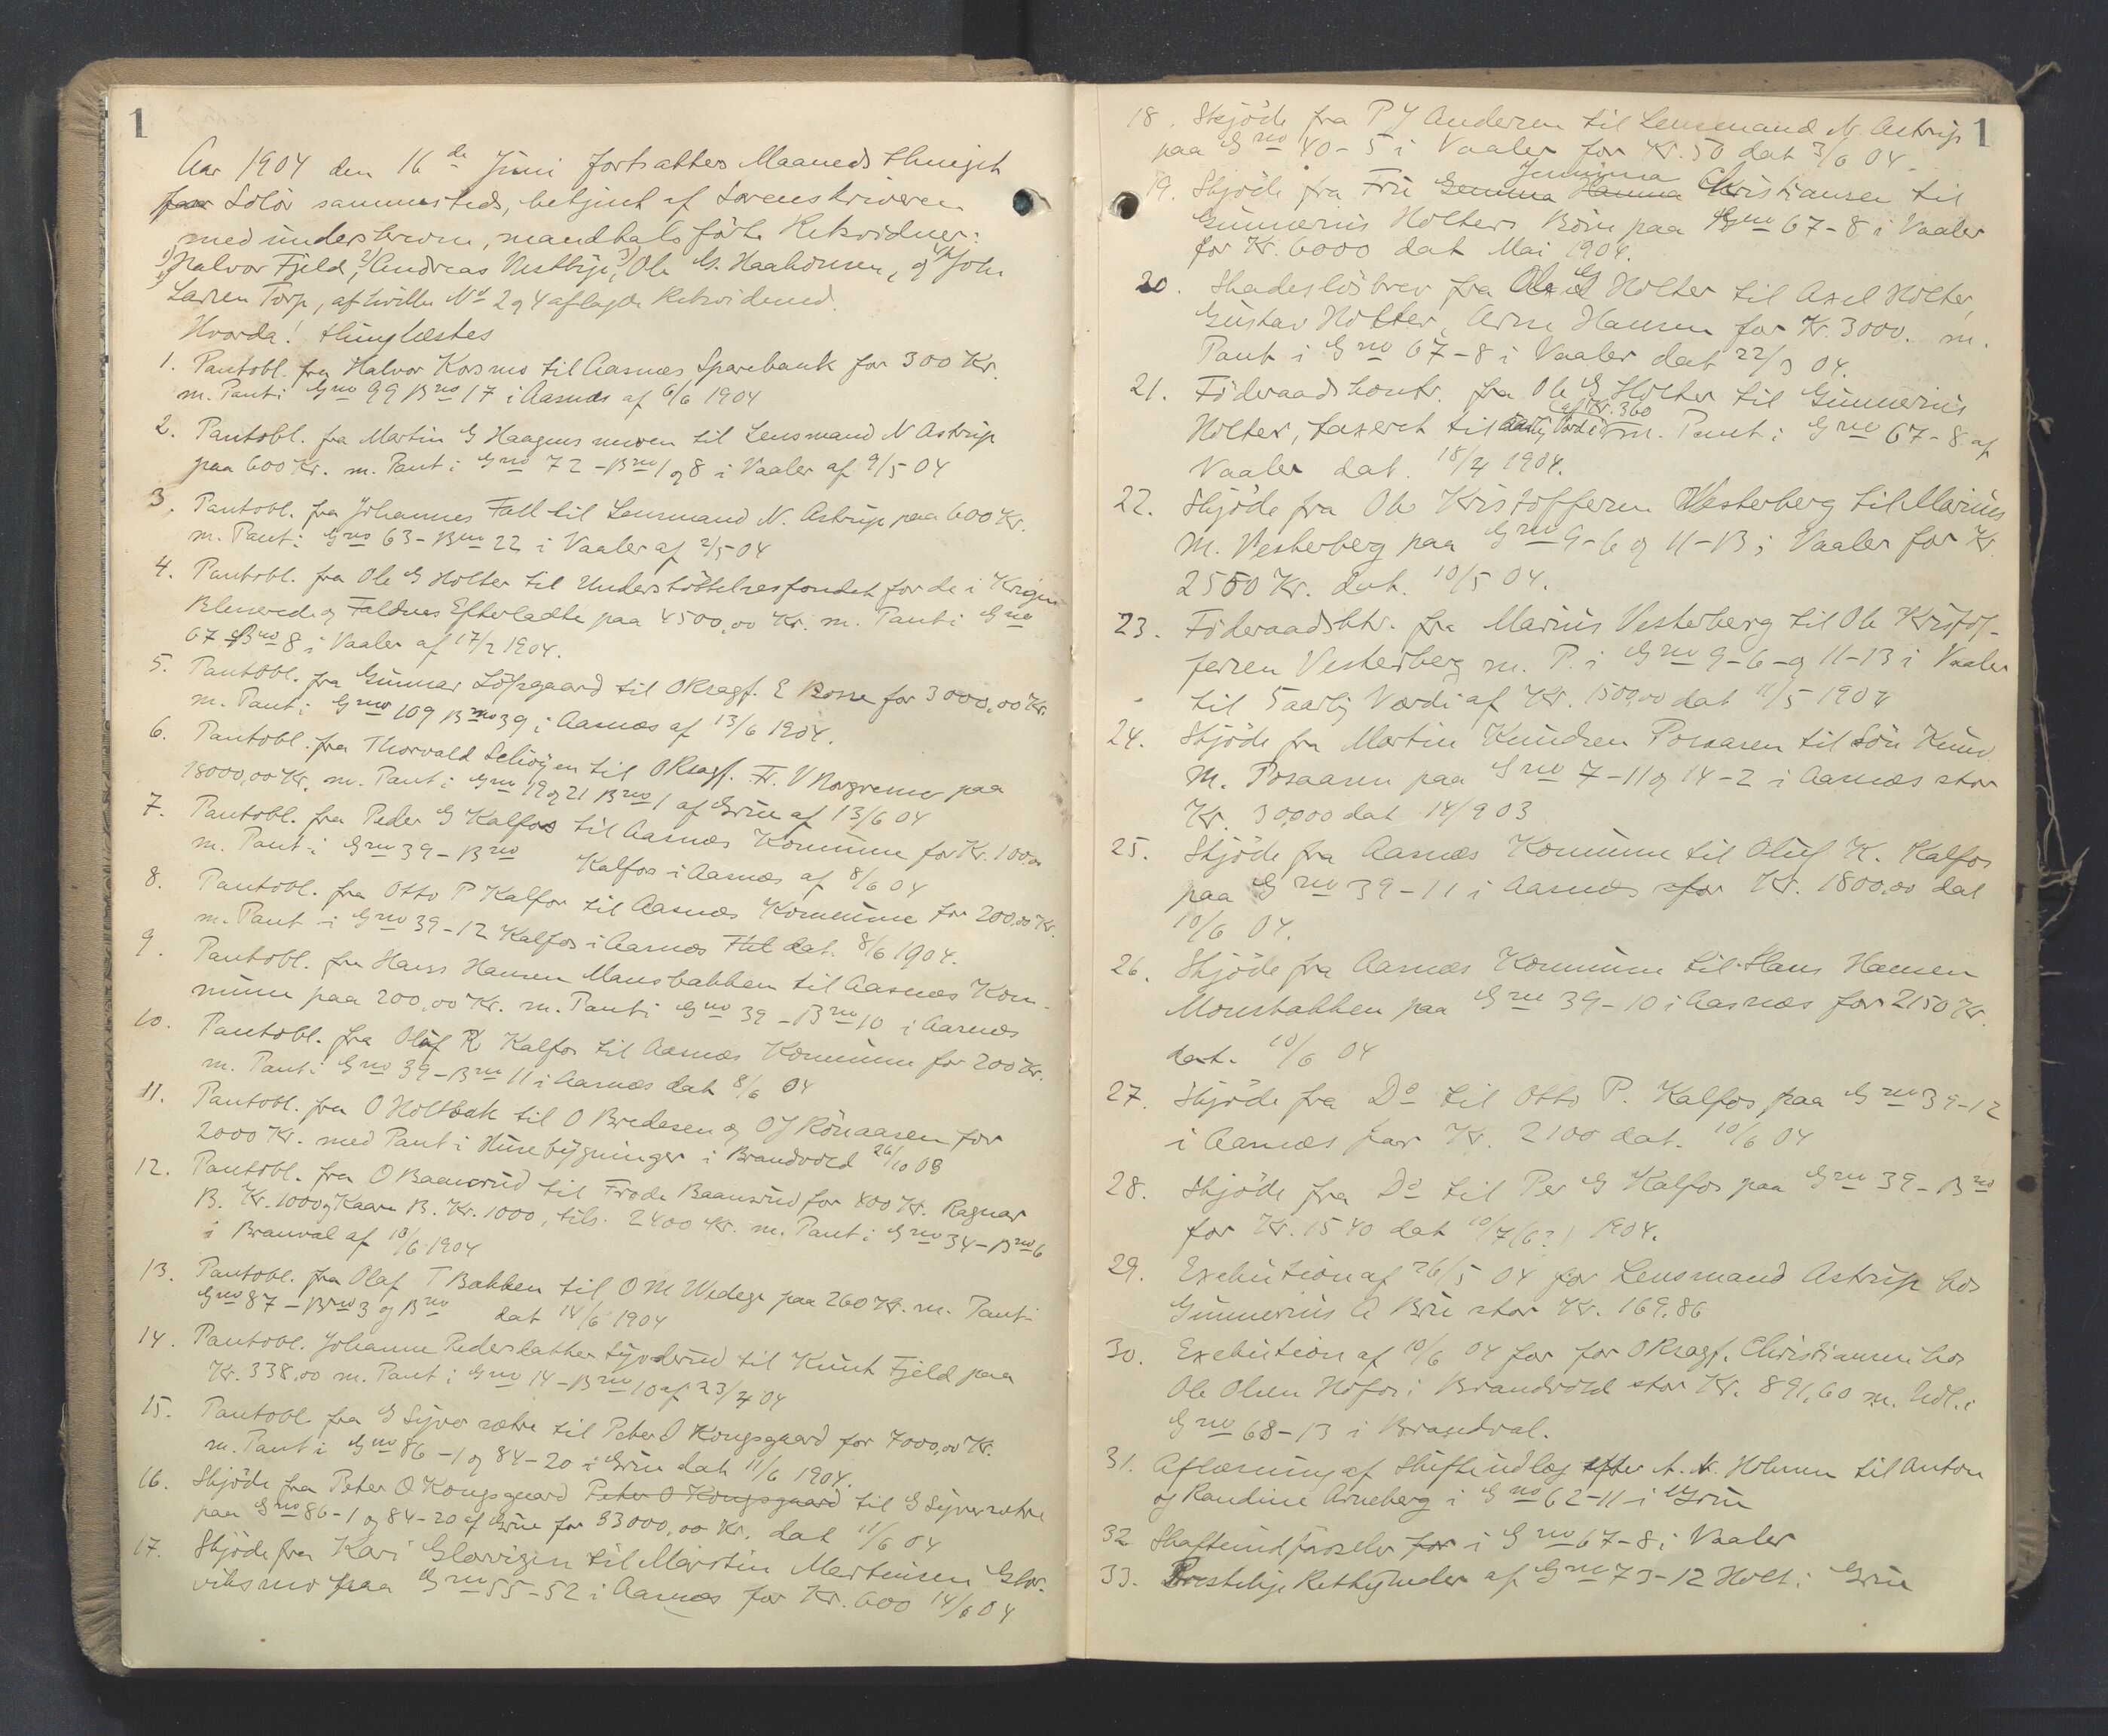 1
Aar 1904 den 16de Juni fortsattes Maanedsthinget
for Solör sammesteds, betjent af Sorenskriveren
med underskrevne, mandtalsförte Retsvidner:
1) Halvor Fjeld, 2) Andreas Vestbye, 3) Ole G. Haakonsen, og 4) John
Larsen Torp, af hvilke No 2 og 4 aflagde Retsvidneed.
Hvorda! thinglæstes
1. Pantobl. fra Halvor Kosmo til Aasnes Sparebank for 300 Kr.
m. Pant i Gno 99 Bno 17 i Aasnes af 6/6 1904
2. Pantobl. fra Martin G Haagensmoen til Lensmand N Astrup
paa 600 Kr. m. Pant i Gno 72 - Bno 1 og 8 i Vaaler af 9/5 04
3. Pantobl. fra Johannes Fall til Lensmand N. Astrup paa 600 Kr.
m. Pant i Gno 63 - Bno 22 i Vaaler af 2/5 04
4. Pantobl. fra Ole G Holter til Understöttelsesfondet for de i Krigen
Blesserede og Faldnes Efterladte paa 4500,00 Kr. m. Pant i Gno
67 Bno 8 i Vaaler af 17/2 1904.
5. Pantobl. fra Gunnar Löfsgaard til ORsagf. E Bosse for 3000,00 Kr.
m. Pant i Gno 109 Bno 39 i Aasnæs af 13/6 1904.
6. Pantobl. fra Thorvald Schöyen til ORsagf. Fr. V Norgreen paa
18000,00 Kr. m. Pant i Gno 19 og 21 Bno 1 af Grue af 13/6 04
7. Pantobl. fra Peder G Kalfos til Aasnæs Kommune for Kr. 100,00
m. Pant i Gno 39 - Bno Kalfos i Aasnæs af 8/6 04
8. Pantobl. fra Otto P Kalfos til Aasnæs Kommune for 200,00 Kr.
m. Pant i Gno 39-12 Kalfos i Aasnæs dat. 8/6 1904.
9. Pantobl. fra Hans Hansen Mausbakken til Aasnæs Kom-
mune paa 200,00 Kr. m. Pant i Gno 39 - Bno 10 i Aasnæs
10. Pantobl. fra Oluf K Kalfos til Aasnæs Kommune for 200 Kr.
m. Pant i Gno 39 - Bno 11 i Aasnæs dat 8/6 04
11. Pantobl. fra O Holtbak til O Bredesen og O J Rönaasen for
2000 Kr. med Pant i Husebygninger i Brandvold 26/10 03
12. Pantobl. fra O Baanrud til Frode Baanrud for 400 Kr. Ragnar
B. Kr. 1000 og Kaare B. Kr. 1000, tils. 2400 Kr. m. Pant i Gno 34 - Bno 6
i Branval af 10/6 1904
13. Pantobl. fra Olaf T Bakken til O M Wedege paa 260 Kr. m. Pant i
Gno 87 - Bno 3 og Bno dat 14/6 1904
14. Pantobl. Johanne Pedersdatter til Knut Fjeld paa
Kr. 338,00 m. Pant i Gno 14 - Bno 10 af 23/4 04
15. Pantobl. fra G Syversætre til Peter O Kongsgaard for 7000,00 Kr.
m. Pant i Gno 86-1 og 84-20 i Grue dat 11/6 1904.
16. Skjöde fra Peter O Kongsgaard Peter O Kongsgaard til G Syversætre
paa Gno 86-1 og 84-20 af Grue for 33000,00 Kr. dat 11/6 04
17. Skjöde fra Kari Glorvigen til Martin Martinsen Glor-
viksmo paa Gno 55-52 i Aasnæs for Kr. 600 14/6 04
1
18. Skjöde fra P J Andersen til Lensmand N. Astrup
paa Gno 40-5 i Vaaler for Kr. 50 dat 3/6 04
19. Skjöde fra Fru Gemma Hanna Jemima Christiansen til
Gunnerius Holters Börn paa Gno 67-8 i Vaaler
for Kr. 6000 dat Mai 1904.
20. Skadeslösbrev fra Ole G Holter til Axel Holter,
Gustav Holter, Arne Hansen for Kr. 3000. m.
Pant i Gno 67-8 i Vaaler dat 22/3 04.
21. Föderaadskontr. fra Ole G Holter til Gunnerius
Holter, taxeret til Aarlig Værdi af Kr. 360 m. Pant i Gno 67-8 af
Vaaler dat. 18/4 1904.
22. Skjöde fra Ole Kristoffersen Vesterberg til Marius
M. Vesterberg paa Gno 9-6 og 11-13 i Vaaler for Kr.
2550 Kr. dat. 10/5 04.
23. Föderaadsktr. fra Marius Vesterberg til Ole Kristof-
fersen Vesterberg m. P. i Gno 9-6 og 11-13 i Vaaler
til 5aarlig Værdi af Kr. 1500,00 dat 11/5 1904
24. Skjöde fra Martin Knudsen Posaasen til Sön Knud
M. Posaasen paa Gno 7-11 og 14-2 i Aasnæs stor
Kr. 3000,00 dat 14/9 03
25. Skjöde fra Aasnæs Kommune til Oluf K. Kalfos
paa Gno 39-11 i Aasnæs for Kr. 1800,00 dat
10/6 04.
26. Skjöde fra Aasnæs Kommune til Hans Hansen
Mousbakken paa Gno 39-10 i Aasnæs for 2150 Kr.
dat. 10/6 04
27. Skjöde fra Do til Otto P. Kalfos paa Gno 39-12
i Aasnæs for Kr. 2100 dat. 10/6 04
28. Skjöde fra Do til Per G Kalfos paa Gno 39 - Bno
for Kr. 1540 dat 10/7 (6?) 1904.
29. Exekution af 26/5 04 for Lensmand Astrup hos
Gunnerius A Bru stor Kr. 169,86
30. Exekution af 10/6 04 for for ORsagf. Christiansen hos
Ole Olsen Nöfos i Brandvold stor Kr. 891,60 m. Udl. i
Gno 68-13 i Brandval.
31. Aflæsning af Skifteudlæg efter A. N. Holmen til Anton
og Randine Arneberg i Gno 62-11 i Grue
32 Skafteindförsler for i Gno 67-8 i Vaaler
33. Prestelige Rettigheder af Gno 73-12 Holt i Grue